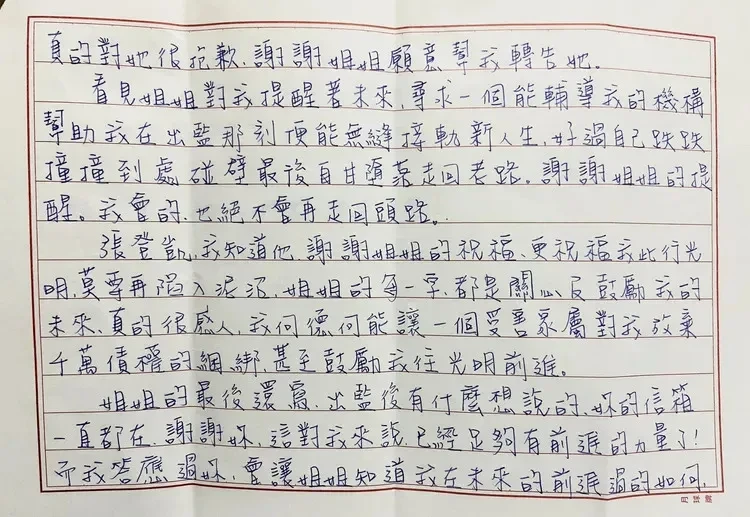 真的對她很抱歉、謝謝姐姐願意幫我轉告她。
看見姐姐對我提醒著未來，尋求一個能輔導我的機構
幫助我在出監那刻便能無縫接軌新人生，好過自己跌跌
撞撞到處碰壁最後自甘墮落走回老路。謝謝姐姐的提
醒。我會的、也絕不會再走回頭路。
張登凱，我知道他、謝謝姐姐的祝福、更祝福我此行光
明，莫要再陷入泥沼，姐姐的每一字、都是關心及鼓勵我的
未來、真的很感人，我何德何能讓一個受害家屬對我放棄
千萬債權的綑綁、甚至鼓勵我往光明前進。
姐姐的最後還寫、出監後有什麼想說的、妳的信箱
一直都在、謝謝妳、這對我來說、已經足夠有前進的力量了！
而我答應過妳、會讓姐姐知道我在未來的前進過的如何、